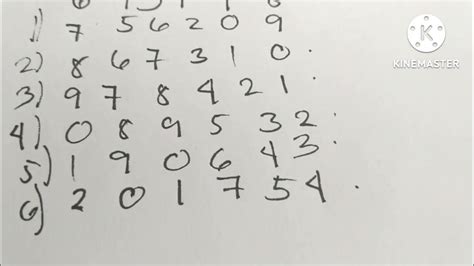 1) 7 5 6 2 0 9
2) 8 6 7 3 1 0.
3) 9 7 8 4 2 1.
4) 0 8 9 5 3 2.
5) 1 9 0 6 4 3.
6) 2 0 1 7 5 4.
KINEMASTER